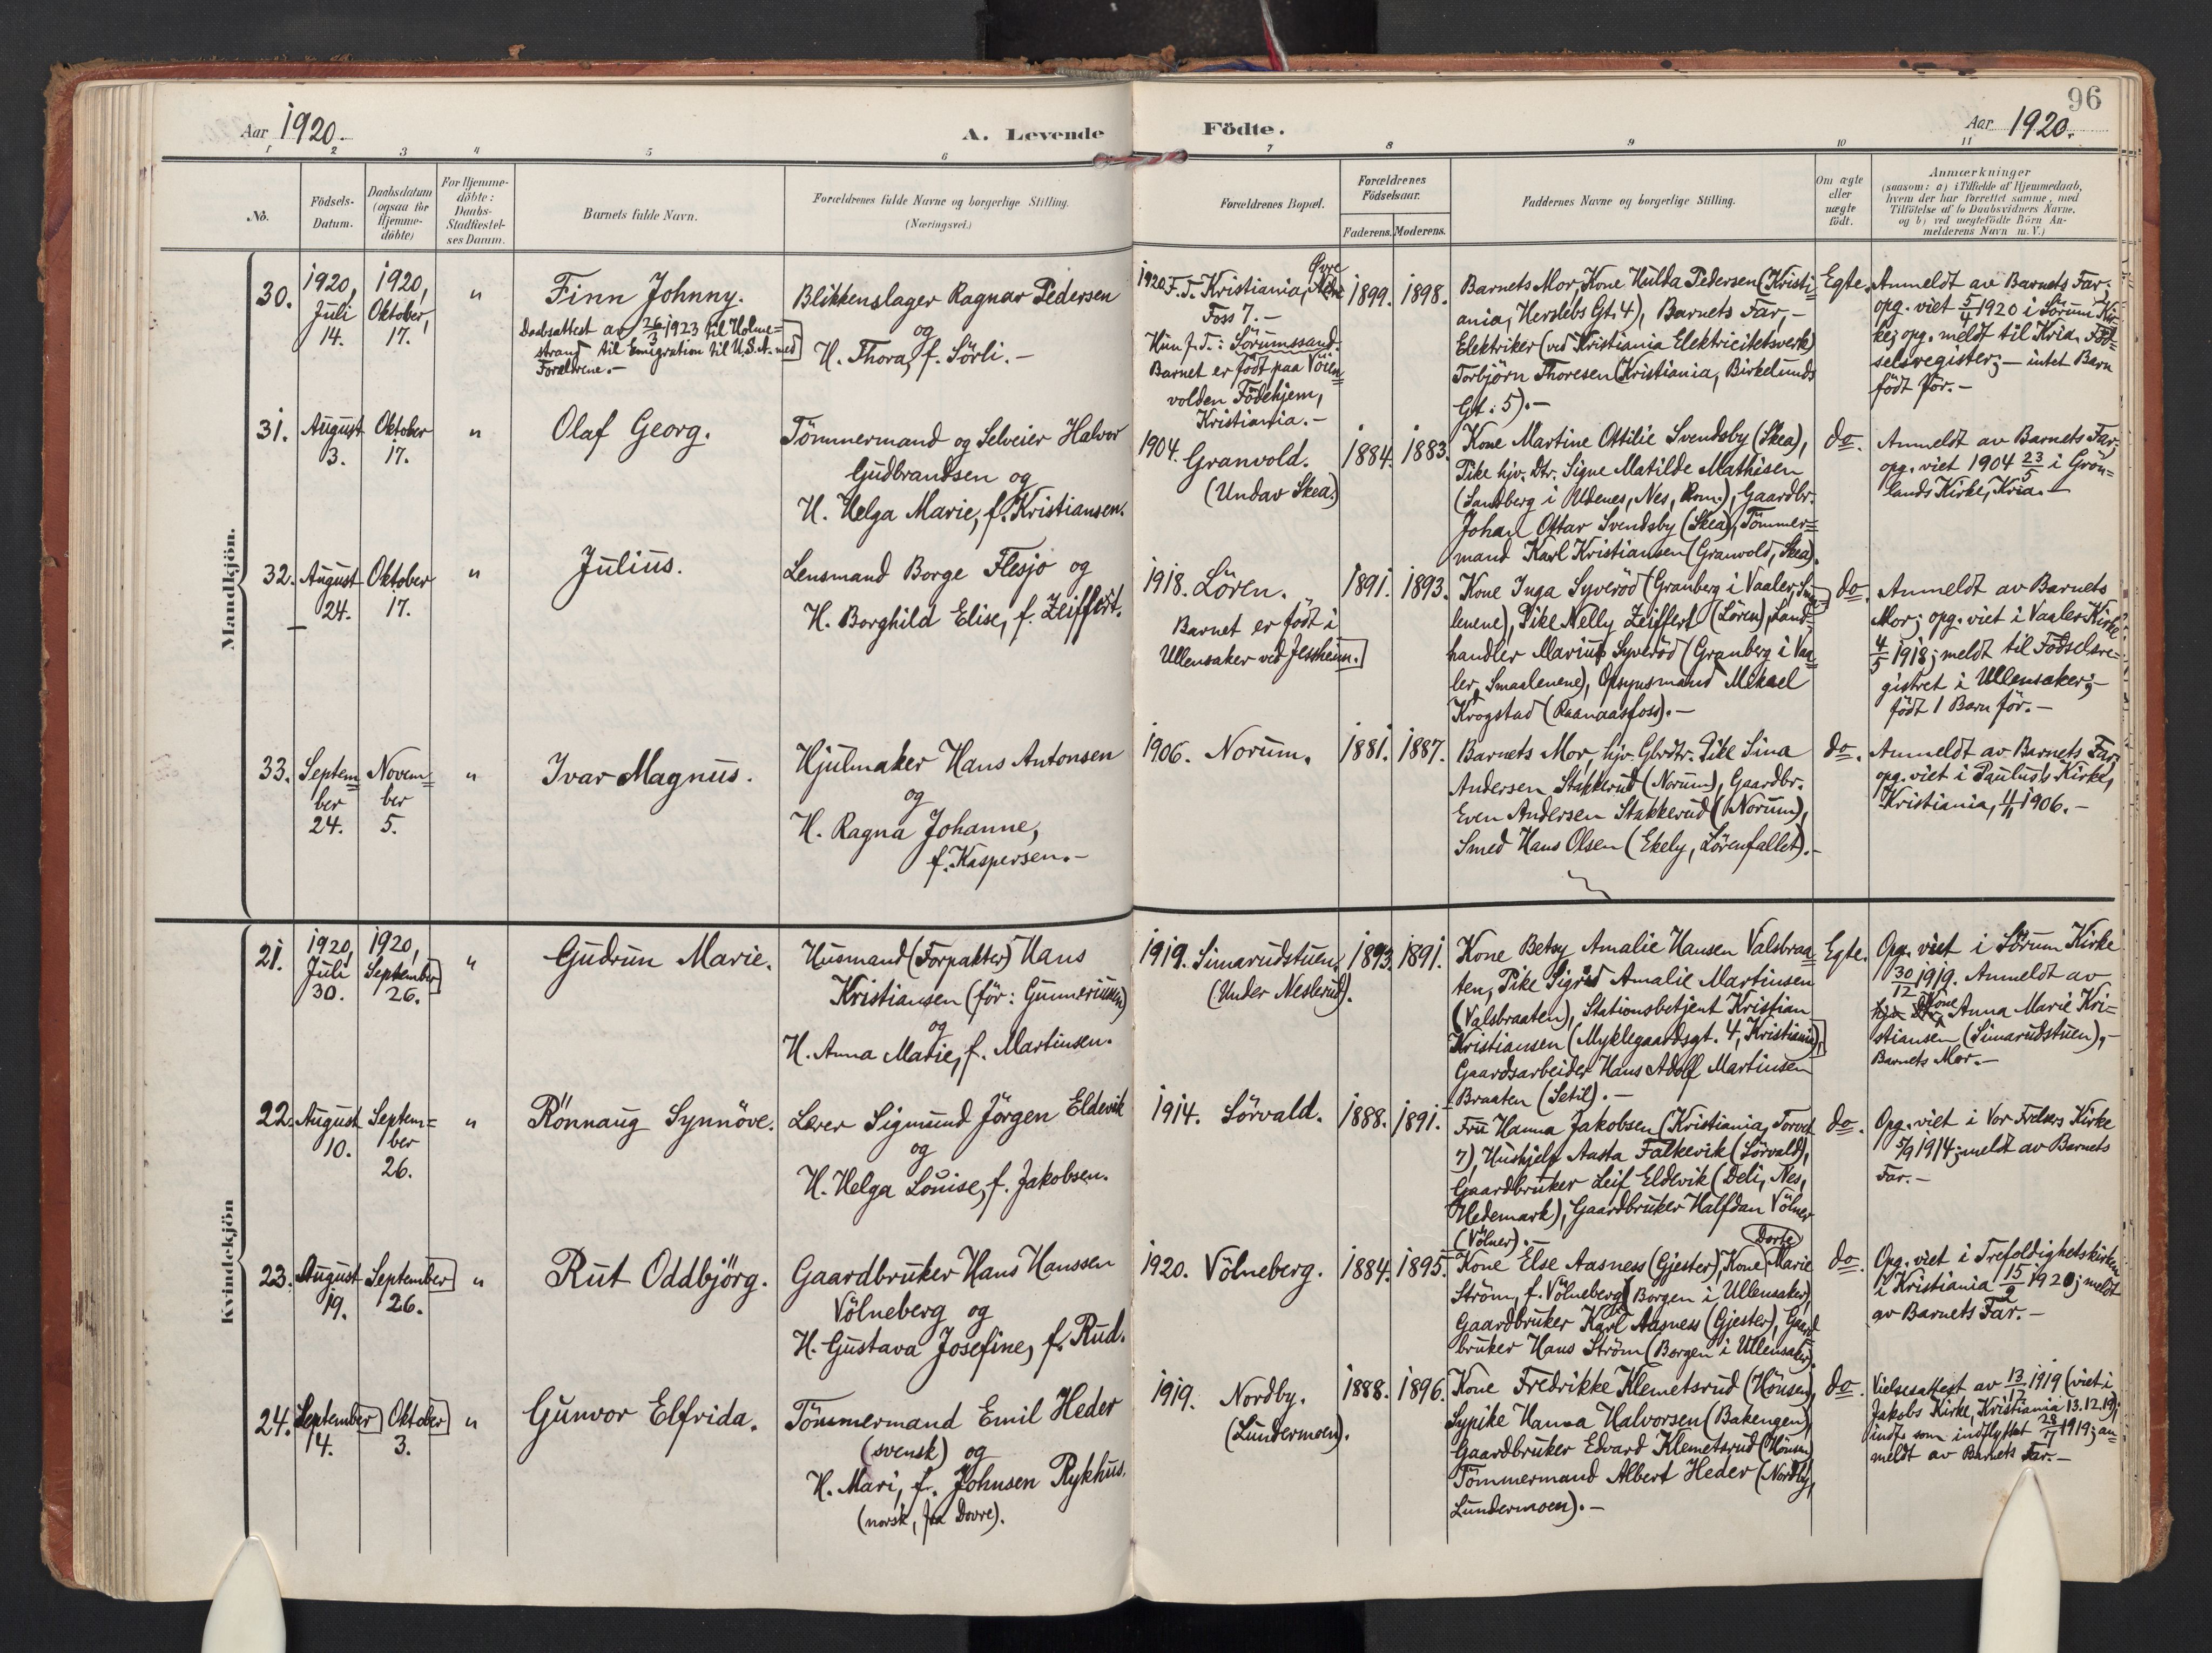 96
Aar 1920.
A. Levende
Födte.
Aar 1920.
1 2 3 4 5 6 7 8 9 10 11
No.
Födsels-
Datum.
Daabsdatum
(ogsaa for
Hjemme-
döbte)
For Hjemme-
döbte:
Daabs-
Stadfæstel-
ses Datum.
Barnets fulde Navn.
Forældrenes fulde Navne og borgerlige Stilling.
(Næringsvei.)
Forældrenes Bopæl.
Forældrenes
Födselsaar.
Faderens. Moderens.
Faddernes Navne og borgerlige Stilling.
Om ægte
eller
uægte
födt.
Anmærkninger
(saasom: a) i Tilfælde af Hjemmedaab,
hvem der har forrettet samme, med
Tilföielse af to Daabsvidners Navne,
og b) ved uægtefödte Börn An-
melderens Navn m. V.)
Mandkjön.
30.
1920,
Juli
14.
1920,
Oktober,
17.
"
Finn Johnny.
Daabsattest av 26/3 1923 til Holme=
strand til Emigration til U.S.A. med
Forældrene.-
Blikkenslager Ragnar Pedersen
og
H. Thora, f. Sörli.-
1920. F.T. Kristiania, Övre
Foss 7.-
Hun f.T.: Sörumssand.
Barnet er födt paa Vöien=
volden Födehjem,
Kristiania.-
1899.
1898.
Barnets Mor, Kone Hulda Pedersen (Kristi=
ania, Herslebs Gt. 4), Barnets Far,-
Elektriker (ved Kristiania Elektricitetsverk)
Torbjörn Thoresen (Kristiania, Birkelunds
Gt. 5).-
Egte.
Anmeldt av Barnets Far;
opg. viet 5/4 1920 i Sörum Kir=
ke; opg. meldt til Kria. Föd=
selsregister;- intet Barn
födt för.-
31.
August
3.
Oktober
17.
"
Olaf Georg.
Tömmermand og Selveier Halvor
Gudbrandsen og
H. Helga Marie, f. Kristiansen.
1904. Granvold.
(Undav Skea.)
1884.
1883.
Kone Martine Ottilie Svendsby (Skea),
Pike hjv. Dtr. Signe Matilde Mathisen
(Sandberg i Udenes, Nes, Rom.), Gaardbr.
Johan Ottar Svendsby (Skea), Tömmer=
mand Karl Kristiansen (Granvold, Skea).
do.
Anmeldt av Barnets Far;
opg. viet 1904 23/5 i Grön=
lands Kirke, Kria.-
32.
August
24.
Oktober
17.
"
Julius.
Lensmand Borge Flesjo og
H. Borghild Elise, f. Zeiffert.
1918. Lören.
Barnet er födt i
Ullensaker ved Jessheim.
1891.
1893.
Kone Inga Syveröd (Granberg i Vaaler, Smaa
lenene), Pike Nelly Zeiffert (Lören), Land=
handler Marius Syveröd (Granberg i Vaa=
ler, Smaalenene), Opsynsmand Mikael
Krogstad (Raanaasfoss).-
do.
Anmeldt av Barnets
Mor; opg. viet i Vaaler Kirke
4/5 1918; meldt til Födselsre=
gistret i Ullensaker;-
födt 1 Barn för.-
33.
Septem=
ber
24.
Novem=
ber
5.
"
Ivar Magnus.
Hjulmaker Hans Antonsen
og
H. Ragna Johanne,
f. Kaspersen.-
1906. Norum.
1881.
1887.
Barnets Mor, hjv. Gbrdtr. Pike Sina
Andersen Stakkerud (Norum), Gaardbr.
Even Andersen Stakkerud (Norum),
Smed Hans Olsen (Ekely, Lörenfallet).-
do.
Anmeldt av Barnets Far;
opg. viet i Paulus's Kirke,
Kristiania, 4/11 1906.-
Kvindekjön
21.
1920,
Juli
30.
1920,
September
26.
"
Gudrun Marie.
Husmand (Forpakter) Hans
Kristiansen (för: Gunneriusen)
og
H. Anna Marie, f. Martinsen.
1919. Simarudstuen.
(Under Neslerud).
1893.
1891.
Kone Betsy Amalie Hansen Valsbraa=
ten, Pike Sigrid Amalie Martinsen
(Valsbraaten), Stationsbetjent Kristian
Kristiansen (Myklegaardsgt. 4, Kristiania),
Gaardsarbeider Hans Adolf Martinsen
Braaten (Setil).-
Egte.
Opg. viet i Sörum Kirke
30/12 1919. Anmeldt av
Kone Anna Marie Kri=
stiansen (Simarudstuen),-
Barnets Mor.-
22.
August
10.
Septem=
ber
26.
"
Rönnaug Synnöve.
Lærer Sigmund Jörgen Eldevik
og
H. Helga Louise, f. Jakobsen.
1914. Sörvald.
1888.
1891.
Fru Hanna Jakobsen (Kristiania, Torvet
7), Hushjelp Aasta Falkevik (Sörvald),
Gaardbruker Leif Eldevik (Deli, Nes,
Hedemark), Gaardbruker Halfdan Völner
(Völner).-
do.
Opg. viet i Vor Frelsers Kirke
5/9 1914; meldt av Barnets
Far.-
23.
August
19.
September
26.
"
Rut Oddbjörg.
Gaardbruker Hans Hanssen
Völneberg og
H. Gustava Josefine, f. Rud.
1920. Völneberg.
1884.
1895.
Dorte
Kone Else Aasness (Gjester), Kone Marie
Ström, f. Völneberg (Borgen i Ullensaker),
Gaardbruker Karl Aasness (Gjester), Gaard
bruker Hans Ström (Borgen i Ullensaker).
do.
Opg. viet i Trefoldighetskirken
i Kristiania 15/2 1920; meldt
av Barnets Far.-
24.
September
14.
Oktober
3.
"
Gunvor Elfrida.
Tömmermand Emil Heder
(svensk) og
H. Mari, f. Johnsen Rykhus.
(norsk, fra Dovre).
1919. Nordby.
(Lundermoen).
1888.
1896.
Kone Fredrikke Klemetsrud (Hönsen),
Sypike Hanna Halvorsen (Bakengen),
Gaardbruker Edvard Klemetsrud (Hönsen)
Tömmermand Albert Heder (Nordby,
Lundermoen).-
do.
Vielsesattest av 13/12 1919 (viet i
Jakobs Kirke, Kristiania 13.12.19);
indf. som indflyttet 28/11 1919; an=
meldt av Barnets Far.-